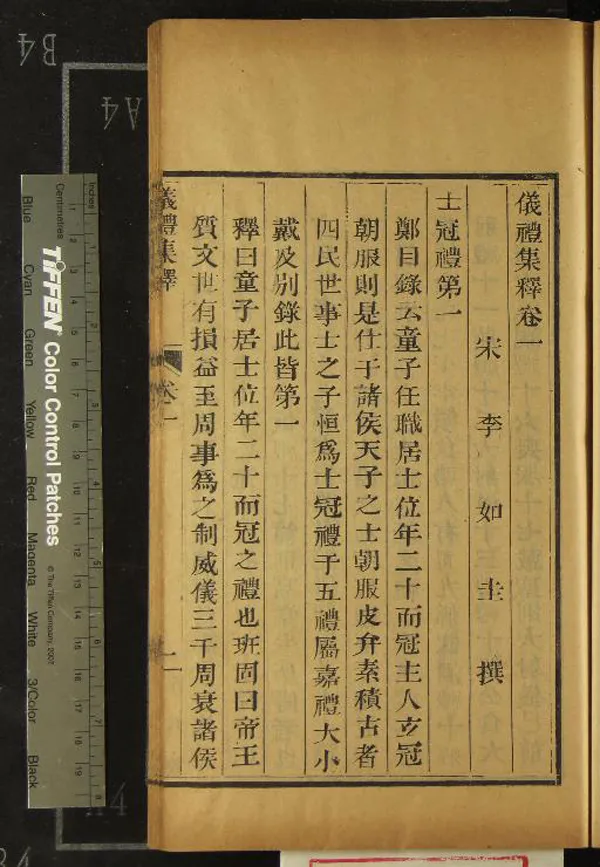 儀禮集釋卷一
宋李如圭撰
士冠禮第一
鄭目錄云童子任職居士位年二十而冠主人玄冠
朝服則是仕于諸侯天子之士朝服皮弁素積古者
四民世事士之子恒爲士冠禮于五禮屬嘉禮大小
戴及別錄此皆第一
釋曰童子居士位年二十而冠之禮也班固曰帝王
質文世有損益至周事爲之制威儀三千周衰諸侯
儀禮集釋 卷一 一
B4
A4
Inches
Centimetres
TIFFEN Color Control Patches
© The Tiffen Company, 2007
Blue
Cyan
Green
Yellow
Red
Magenta
White
3/Color
Black